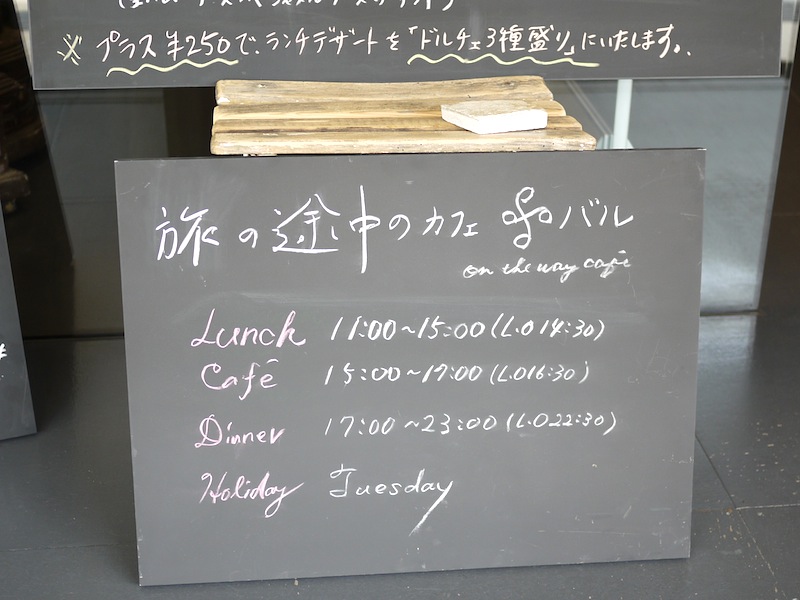 ※ プラス¥250で、ランチデザートを「ドルチェ3種盛り」にいたします。
旅の途中のカフェ&バル
on the way café
Lunch 11:00~15:00(L.O14:30)
Café 15:00~17:00(L.O16:30)
Dinner 17:00~23:00(L.O22:30)
Holiday Tuesday